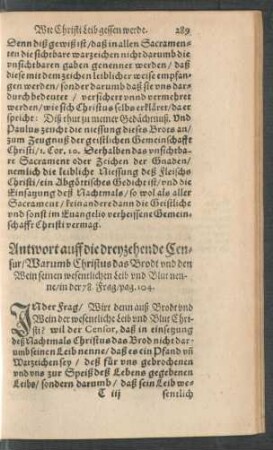 Wie Christi Leib gessen werde. 289
Denn diß gewiß ist/ daß in allen Sacramen-
ten die sichtbare warzeichen nicht darumb die
vnsichtbaren gaben genennet werden/ daß
diese mit dem zeichen leiblicher weise empfan-
gen werden/ sonder darumb/ daß sie vns dar-
durch bedeutet/ versichert vnnd vermehret
werden/ wie sich Christus selbs erkläret/ da er
spricht: Diß thut zu meiner Gedächtnuß. Vnd
Paulus zeucht die niessung dieses Brots an/
zum Zeugnuß der geistlichen Gemeinschafft
Christi/ 1. Cor. 10. Derhalben das vnsichtba-
re Sacrament oder Zeichen der Gnaden/
nemlich die leibliche Niessung deß Fleischs
Christi/ ein Abgöttisches Gedicht ist/ vnd die
Einsatzung deß Nachtmals/ so wol als aller
Sacrament/ kein andere dann die Geistliche
vnd sonst im Euangelio verheissene Gemein-
schafft Christi vermag.
Antwort auff die dreyzehende Cen-
sur/ Warumb Christus das Brodt vnd den
Wein seinen wesentlichen Leib vnd Blut nen-
ne/ in der 78. Frag/ pag. 104.
IN der Frag/ Wirt denn auß Brodt vnd
Wein der wesentliche Leib vnd Blut Chri-
sti: wil der Censor, daß in einsetzung
deß Nachtmals Christus das Brod nicht dar-
umb seinen Leib nenne/ daß es ein Pfand vñ
Warzeichen sey/ deß für vns gebrochenen
vnd vns zur Speiß deß Lebens gegebenen
Leibs/ sondern darumb/ daß sein Leib we-
T iij sentlich